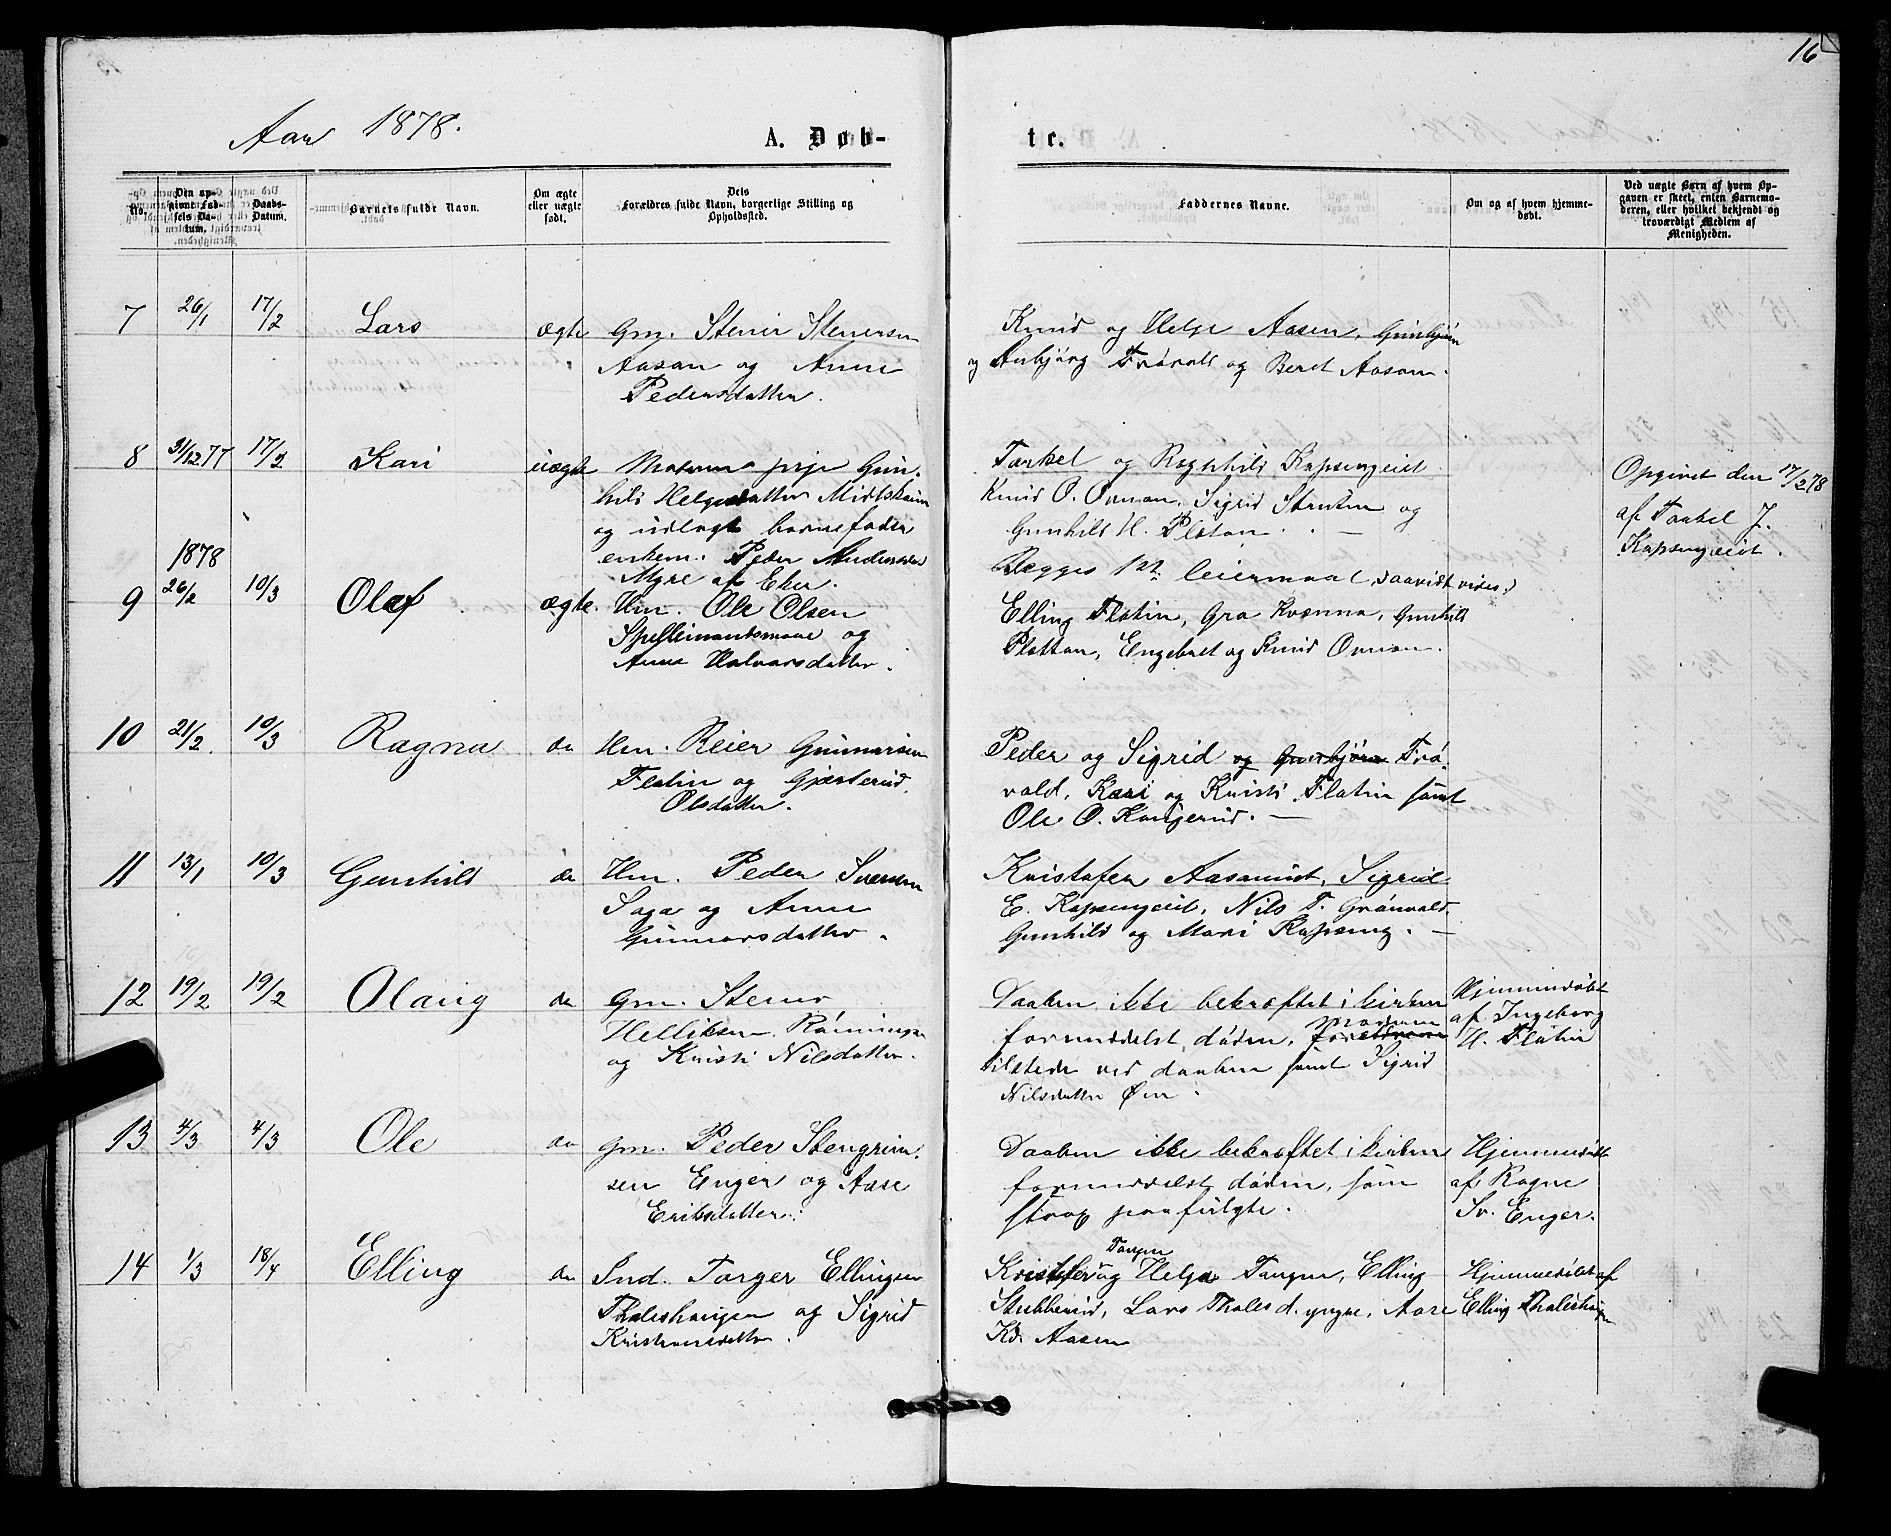 16
Aar 1878.
A. Døb-
te.
No.
Din op-
givne Fød-
sels Da-
tum.
Daabs-
Datum.
Barnets fulde Navn.
Om ægte
eller uægte
født.
Dets
Forældres fulde Navn, borgerlige Stilling og
Opholdssted.
Faddernes Navne.
Om og af hvem hjemme-
døbt.
Ved uægte Børn af hvem Op-
gaven er skeet, enten Barnemo-
deren, eller hvilket bekjendt og
troværdigt Medlem af
Menigheden.
7 26/1 17/2 Lars ægte Gm. Stener Stenersen
Aasan og Anne
Pedersdatter.
Knud og Helge Aasen, Gunbjørn
og Anbjørg Trøvald og Beret Aasan.
8 31/12 77 17/2 Kari uægte pige Gun-
hild Helgesdatter
og udlagt barnefader
enkem. Peder Andersen
Myre af Eker.
Tarkel og Ragnhild Kapsengeiet
Knud O. Ovnan, Sigrid og
Gunhild H. Pletan. —
Begges 1ste leiermaal saavidt vides.
Opgivet den 17/2 78
af Tarkel J.
Kapsengeiet.
1878
9 26/2 10/3 Olaf ægte. Hm. Ole Olsen
Spellemantsmoae og
Anne Halvorsdatter.
Elling Flatin, Gro Kvænna, Gunhild
Plettan, Engebret og Knud Ovnan.
10 21/2. 10/3 Ragna do Hm. Reier Gunnarsen
Flatin og Gjæsterud
Olsdatter.
Peder og Sigrid og Gunbjørn Trø-
vald, Kari og Kristi Flatin samt
Ole O. Kongerud. —
11 13/1 10/3 Gunhild do Hm. Peder Svensen
Saga og Anne
Gunnarsdatter.
Kristofer Aasamist, Sigrid
E. Kapsengeiet, Nils T. Grønvald.
Gunhild og Mari Kapseng. —
12 19/2 19/2 Olaug do Gm. Stener
Helliksen Rønningen
og Kristi Nilsdatter.
Daaben ikke bekræftet i kirken
formedelst døden, moderen
tilstede ved daaben samt Sigrid
Nilsdatter Øen.
Hjemmedøbt
af Ingeborg
H. Flatin
13 4/3 4/3 Ole do Gm. Peder Stengrim-
sen Enger og Aase
Eriksdatter.
Daaben ikke bekræftet i kirken
formedelst døden, som
strax paafulgte.
Hjemmedøbt
af Ragne
Sv. Enger.
14 1/3 18/4 Elling do Ind. Torger Ellingsen
Thaleshaugen og Sigrid
Kristiansdatter.
Tangen
Kristofer og Helge Tangen, Elling
Stubberud, Lars Thalesd. yngre, Aase
Kd. Aasen
Hjemmedøbt af
Elling Thaleshaugen